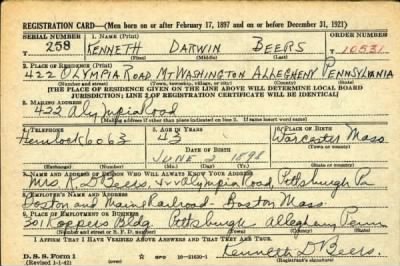 REGISTRATION CARD—(Men born on or after February 17, 1897 and on or before December 31, 1921)
SERIAL NUMBER 1. NAME (Print) ORDER NUMBER
258 KENNETH DARWIN BEERS 10531
(First) (Middle) (Last)
2. PLACE OF RESIDENCE (Print)
422 OLYMPIA ROAD MT WASHINGTON ALLEGHENY PENNSYLVANIA
(Number and street) (Town, township, village, or city) (County) (State)
[THE PLACE OF RESIDENCE GIVEN ON THE LINE ABOVE WILL DETERMINE LOCAL BOARD
JURISDICTION; LINE 2 OF REGISTRATION CERTIFICATE WILL BE IDENTICAL]
3. MAILING ADDRESS
422 Olympia Road
(Mailing address if other than place indicated on line 2. If same insert word same)
4. TELEPHONE 5. AGE IN YEARS 6. PLACE OF BIRTH
Hemlock 6063 43 Worcester
DATE OF BIRTH (Town or county)
JUNE 2 1898 Mass
(Exchange) (Number) (Mo.) (Day) (Yr.) (State or country)
7. NAME AND ADDRESS OF PERSON WHO WILL ALWAYS KNOW YOUR ADDRESS
Mrs K. D Beers, 422 Olympia Road, Pittsburgh Pa
8. EMPLOYER'S NAME AND ADDRESS
Boston and Maine Railroad - Boston Mass.
9. PLACE OF EMPLOYMENT OR BUSINESS
301 Koppers Bldg. Pittsburgh Allegheny Penn
(Number and street or R. F. D. number) (Town) (County) (State)
I AFFIRM THAT I HAVE VERIFIED ABOVE ANSWERS AND THAT THEY ARE TRUE.
D. S. S. Form 1
(Revised 1-1-42) (over) GPO 16—21630-1 Kenneth D Beers.